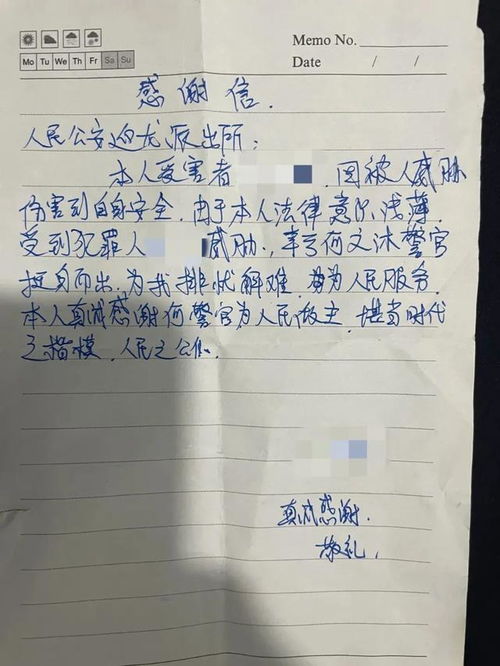 Memo No.
Mo Tu We Th Fr Sa Su
Date / /
感谢信.
人民公安迎龙派出所:
本人受害者 因被人威胁
伤害到自身安全,由于本人法律意识浅薄,
受到犯罪人 威胁,幸亏何文沐警官
挺身而出,为我排忧解难,为人民服务.
本人真诚感谢何警官为人民做主,堪当时代
之楷模,人民之公仆.
真诚感谢.
敬礼,